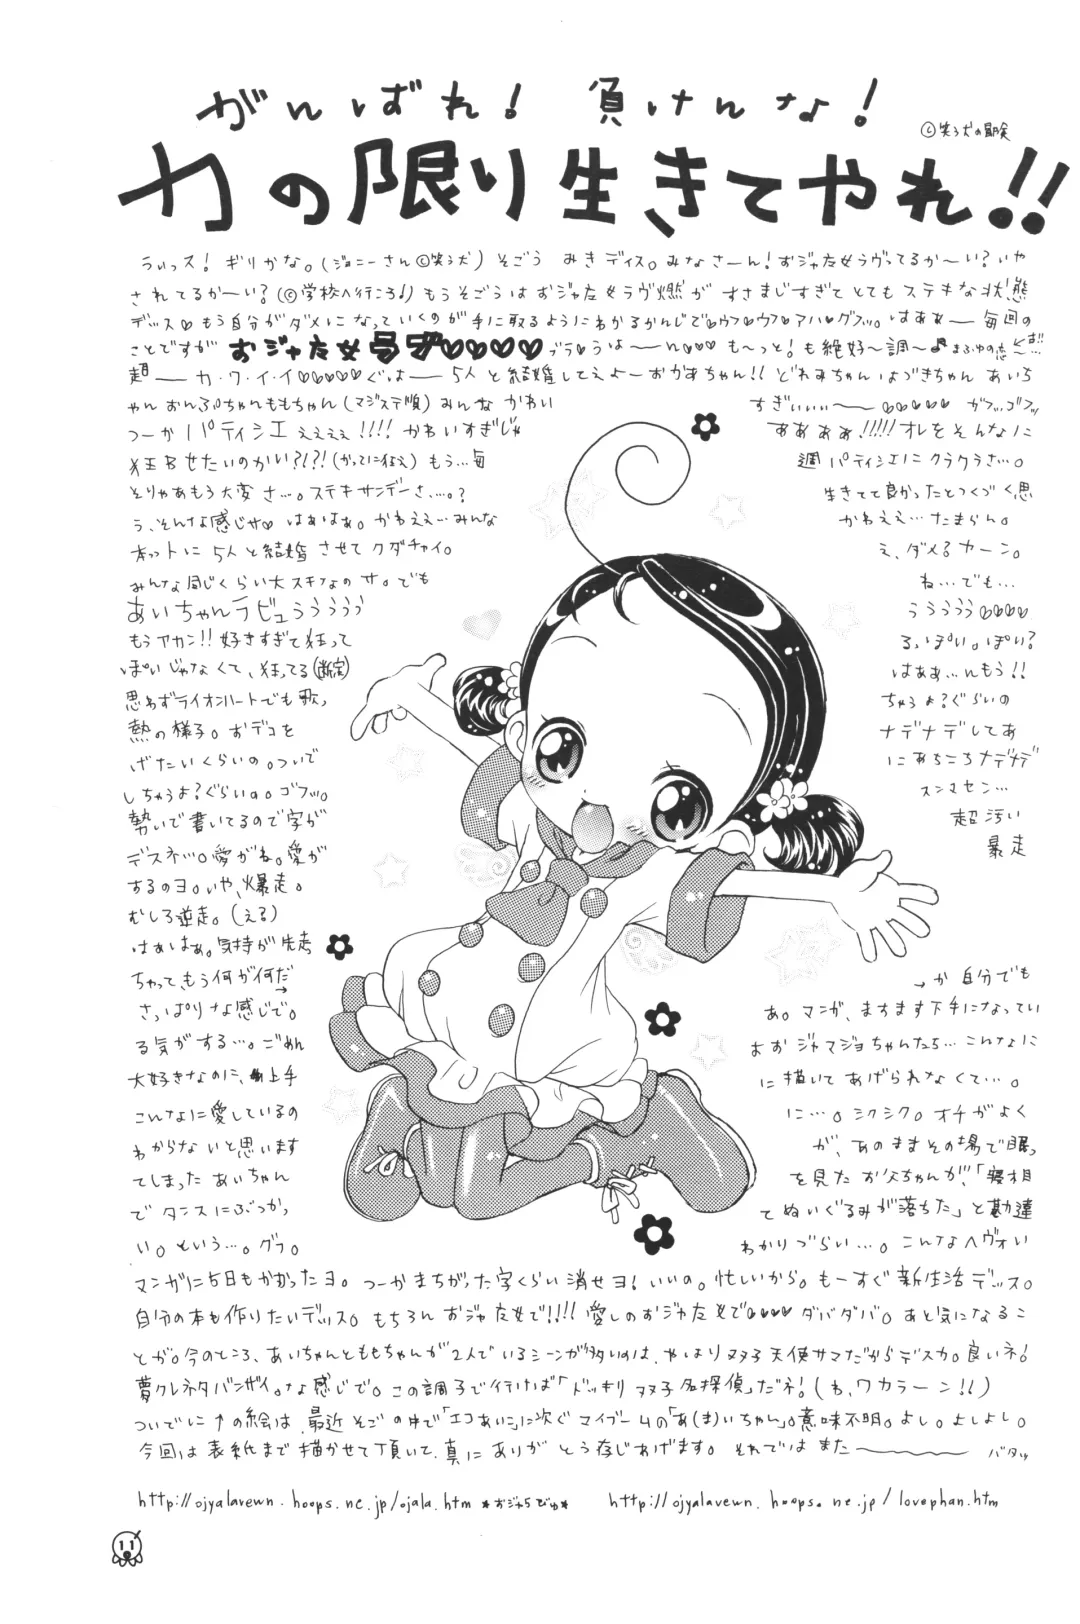 がんばれ! 負けんな!
©笑う犬の冒険
力の限り生きてやれ!!
ういっス!ギリかな。(ジョニーさん©笑う犬)そごう みきディス。みなさーん!おジャ魔女ラヴってるかーい?いや
されてるかーい?(©学校へ行こう!)もうそごうはおジャ魔女ラヴ燃がすさまじすぎてとてもステキな状態
デッス♥もう自分がダメになっていくのが手に取るようにわかるかんじで♥ウフ♥ウフ♥アハ♥グフッ。はあぁー毎回の
ことですがおジャ魔女ラブ♥♥♥♥ブラ♥うはーん♥♥♥も〜っと!も絶好〜調〜♪
超ーカ・ワ・イ・イ♥♥♥♥♥ぐはー5人と結婚してえよーおかあちゃん!!どれみちゃんはづきちゃんあいち
ゃんおんぷちゃんももちゃん(マジステ順)みんなかわい すぎぃぃぃ〜♥♥♥♥♥ガフッゴフッ
つーかパティシエぇぇぇぇ!!!!かわいすぎじゃ ああああ!!!!!オレをそんなに
狂わせたいのかい?!?!(かってに狂え)もう…毎 週パティシエにクラクラさ…。
そりゃあもう大変さ…。ステキサンデーさ…。? 生きてて良かったとつくづく思
う、そんな感じサ♥はぁはぁ。かわえぇ…みんな かわええ…たまらん。
ホットに5人と結婚させてクダチャイ。 え、ダメ?カーン。
みんな同じくらい大スキなのサ。でも ね…でも…
あいちゃんラビュううううう うううううう♥♥♥♥
もうアカン!!好きすぎて狂って る。っぽい。ぽい?
ぽいじゃなくて、狂ってる(断定) はあぁ…んもう!!
思わずライオンハートでも歌っ ちゃうよ?ぐらいの
熱の様子。おデコを ナデナデしてあ
げたいくらいの。ついで にあちこちナデナデ
しちゃうよ?ぐらいの。ゴフッ。 スンマセン…
勢いで書いてるので字が 超汚い
デスネッ。愛がね。愛が 暴走
するのヨ。いや、爆走。
むしろ逆走。(える)
はぁはぁ。気持が先走
ちゃってもう何が何だ →か自分でも
さっぱりな感じで。 あ。マンガ、ますます下手になってい
る気がする…。ごめん よおジャマジョちゃんたち…こんなに
大好きなのに、上手 に描いてあげられなくて…。
こんなに愛しているの に…。シクシク。オチがよく
わからないと思います が、あのままその場で眠っ
てしまったあいちゃん を見たお父ちゃんが、「寝相
でタンスにぶつかっ てぬいぐるみが落ちた」と勘違
い。という…。グラ。 わかりづらい…。こんなヘヴォい
マンガに5日もかかったヨ。つーかまちがった字くらい消せヨ!いいの。忙しいから。もーすぐ新生活デッス。
自分の本も作りたいデッス。もちろんおジャ魔女で!!!!愛しのおジャ魔女で♥♥♥♥ダバダバ。あと気になるこ
とが。今のところ、あいちゃんとももちゃんが2人でいるシーンが多いのは、やはり双子天使サマだからデスカ。良いネ!
夢クレネタバンザイ。な感じで。この調子で行けば「ドッキリ双子名探偵」だネ!(わ、ワカラーン!!)
ついでに↑の絵は、最近そごの中で「エコあいこ」に次ぐマイブームの「あ(ま)いちゃん」。意味不明。よし。よしよし。
今回は表紙まで描かせて頂いて、真にありがとう存じあげます。それではまたーーー バタッ
http://ojyalavewn.hoops.ne.jp/ojala.htm *おジャらびゅ* http://ojyalavewn.hoops.ne.jp/lovephan.htm
11